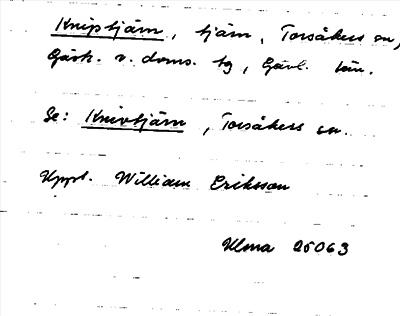 Kniptjärn, tjärn, Torsåkers sn,
Gästr. v. doms. tg, Gävl. län.
Se: Knivtjärn, Torsåkers sn.
Uppt. William Eriksson
Ulma 25063